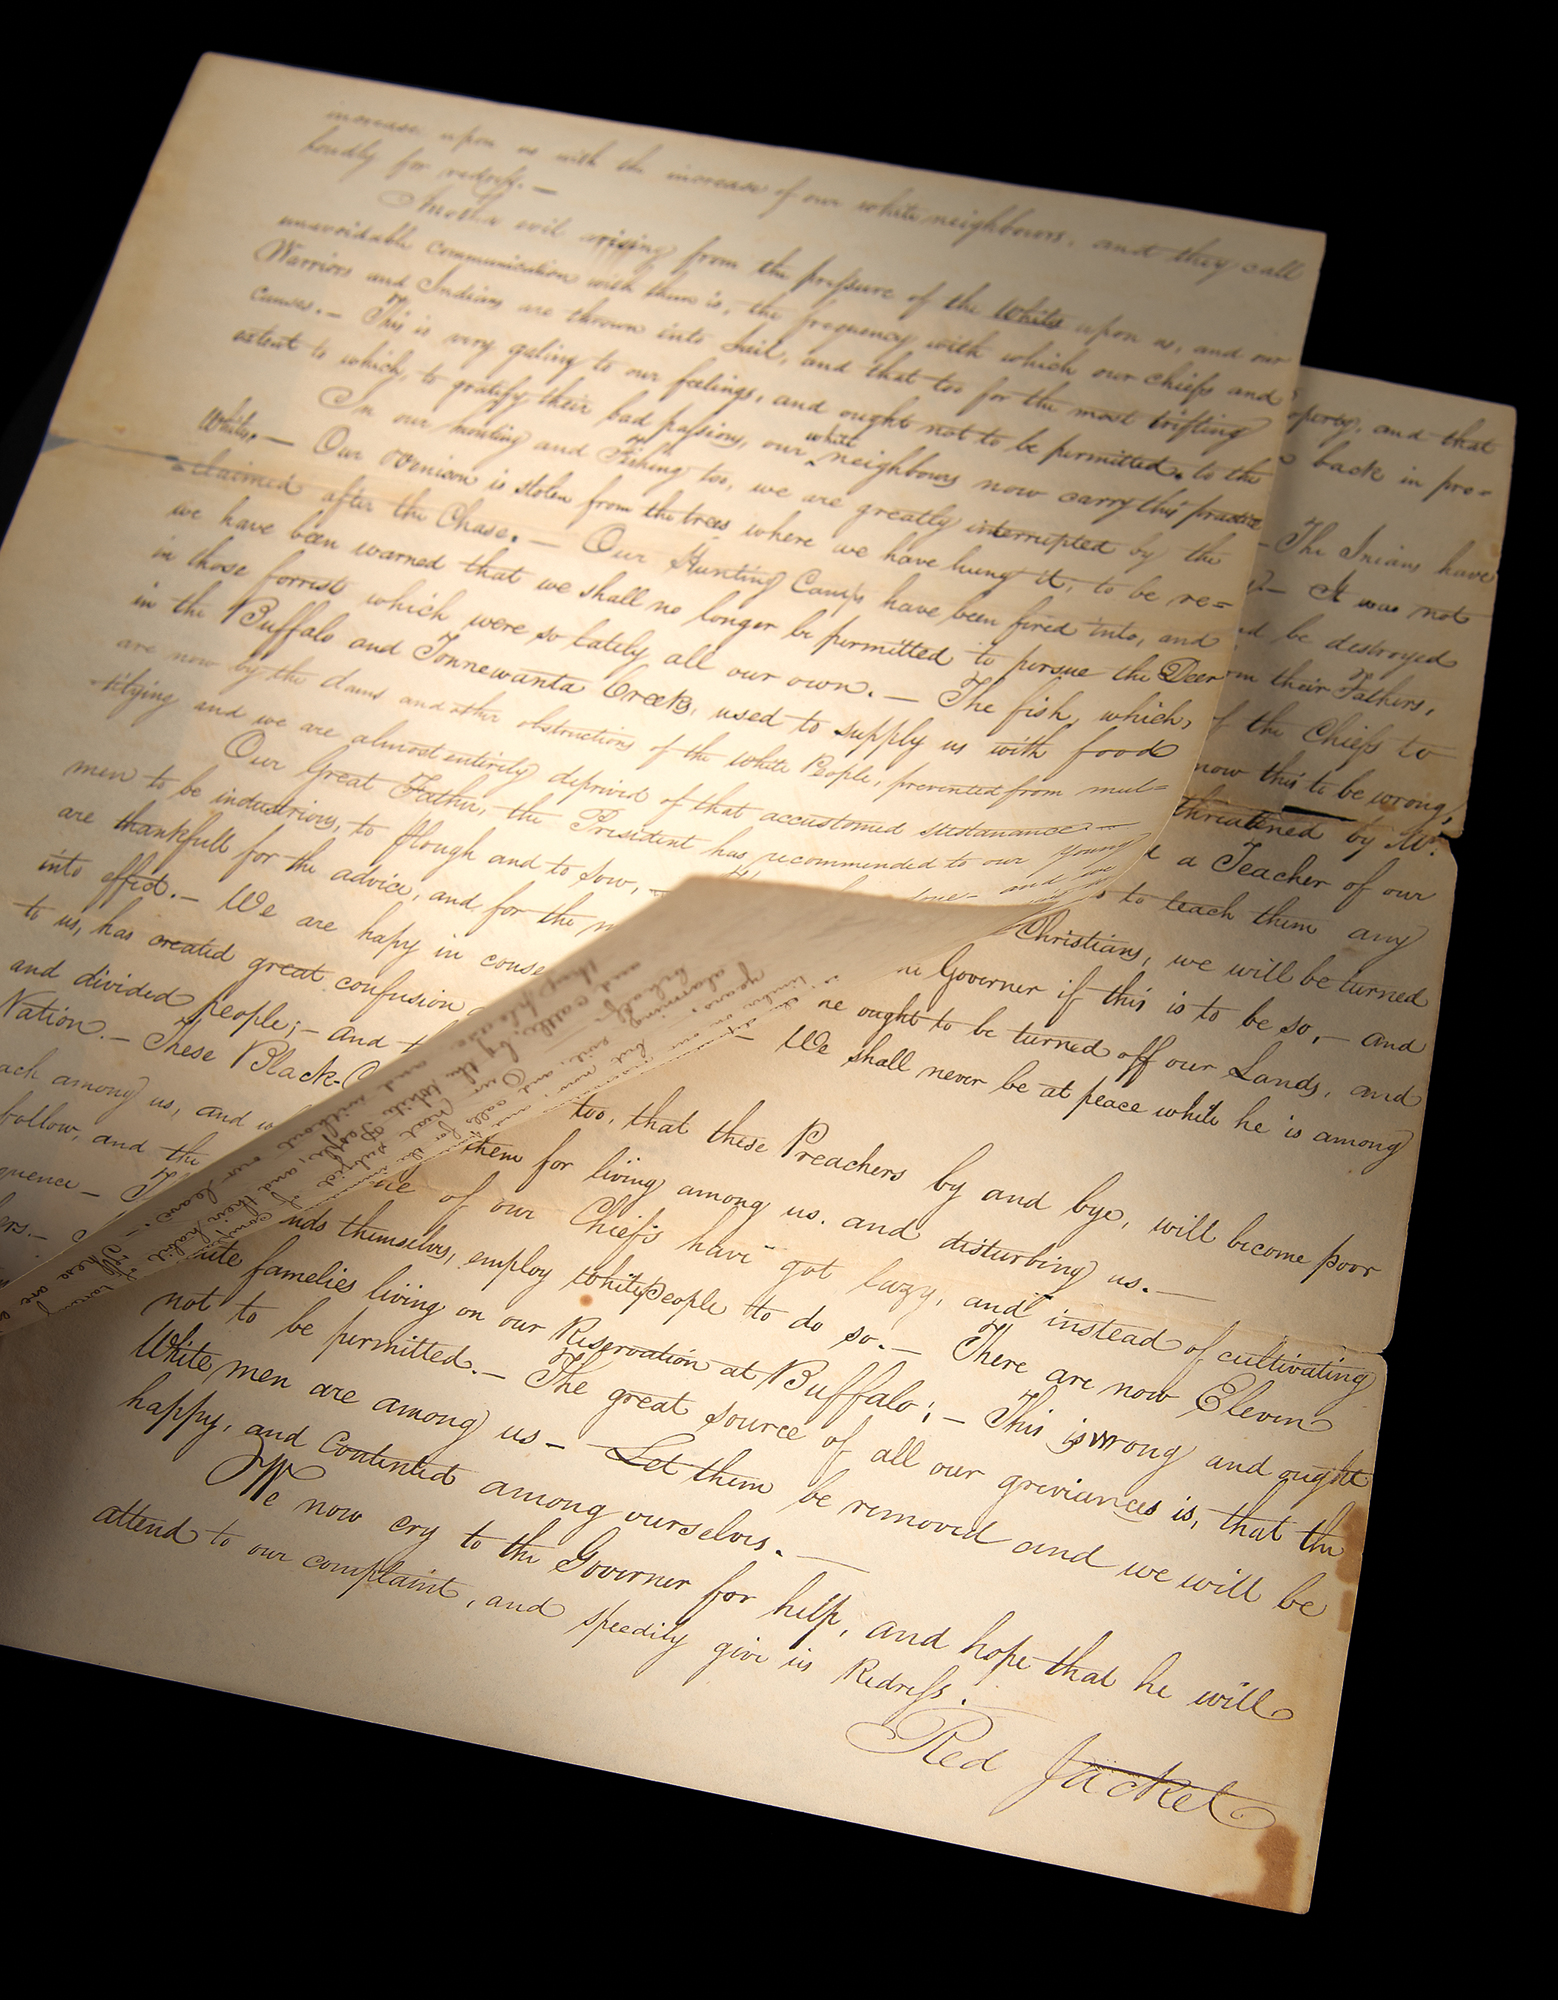 increase upon us with the increase of our white neighbours, and they call
loudly for redress. —
Another evil arising from the pressure of the Whites upon us, and our
unavoidable communication with them is, the frequency with which our chiefs and
Warriors and Indians are thrown into Jail, and that too for the most trifling
causes. — This is very galing to our feelings, and ought not to be permitted. to the
extent to which, to gratify their bad passions, our white neighbours now carry this practice
In our hunting and Fishing too, we are greatly interrupted by the
Whites. — Our Venison is stolen from the trees where we have hung it, to be re=
=claimed after the Chase. — Our Hunting Camps have been fired into, and
we have been warned that we shall no longer be permitted to persue the Deer
in those forrists which were so lately all our own. — The fish, which,
in the Buffalo and Tonnewanta Creeks, used to supply us with food
are now by the dams and other obstructions of the white People, prevented from mul=
tilying and we are almost entirely deprived of that accustomed sustanance. —
Our Great Father, the President has recommended to our young
men to be industrious, to plough and to sow,
are thankfull for the advice, and for the
into effect. — We are hapy in conse
to us, has created great confusion
and divided people; — and
Nation. — These Black-
ach among us, and
follow, and the
quence —
operty, and that
back in pro=
— The Inians have
— It was not
be destroyed
their Fathers,
of the Chiefs to
now this to be wrong,
threatened by Mr.
a Teacher of our
to teach them any
Christians, we will be turned
Governer if this is to be so, — and
ought to be turned off our Lands, and
— We shall never be at peace while he is among
too, that these Preachers by and bye, will become poor
them for living among us. and disturbing us. —
of our Chiefs have got lazy, and instead of cultivating
nds themselves, employ white people to do so. — There are now Eleven
families living on our Reservation at Buffalo; — This is wrong and ought
not to be permitted. — The great source of all our greviances is, that the
White men are among us — Let them be removed and we will be
happy, and Contented among ourselves. —
We now cry to the Governer for help, and hope that he will
attend to our complaint, and speedily give us Redress.
Red Jacket